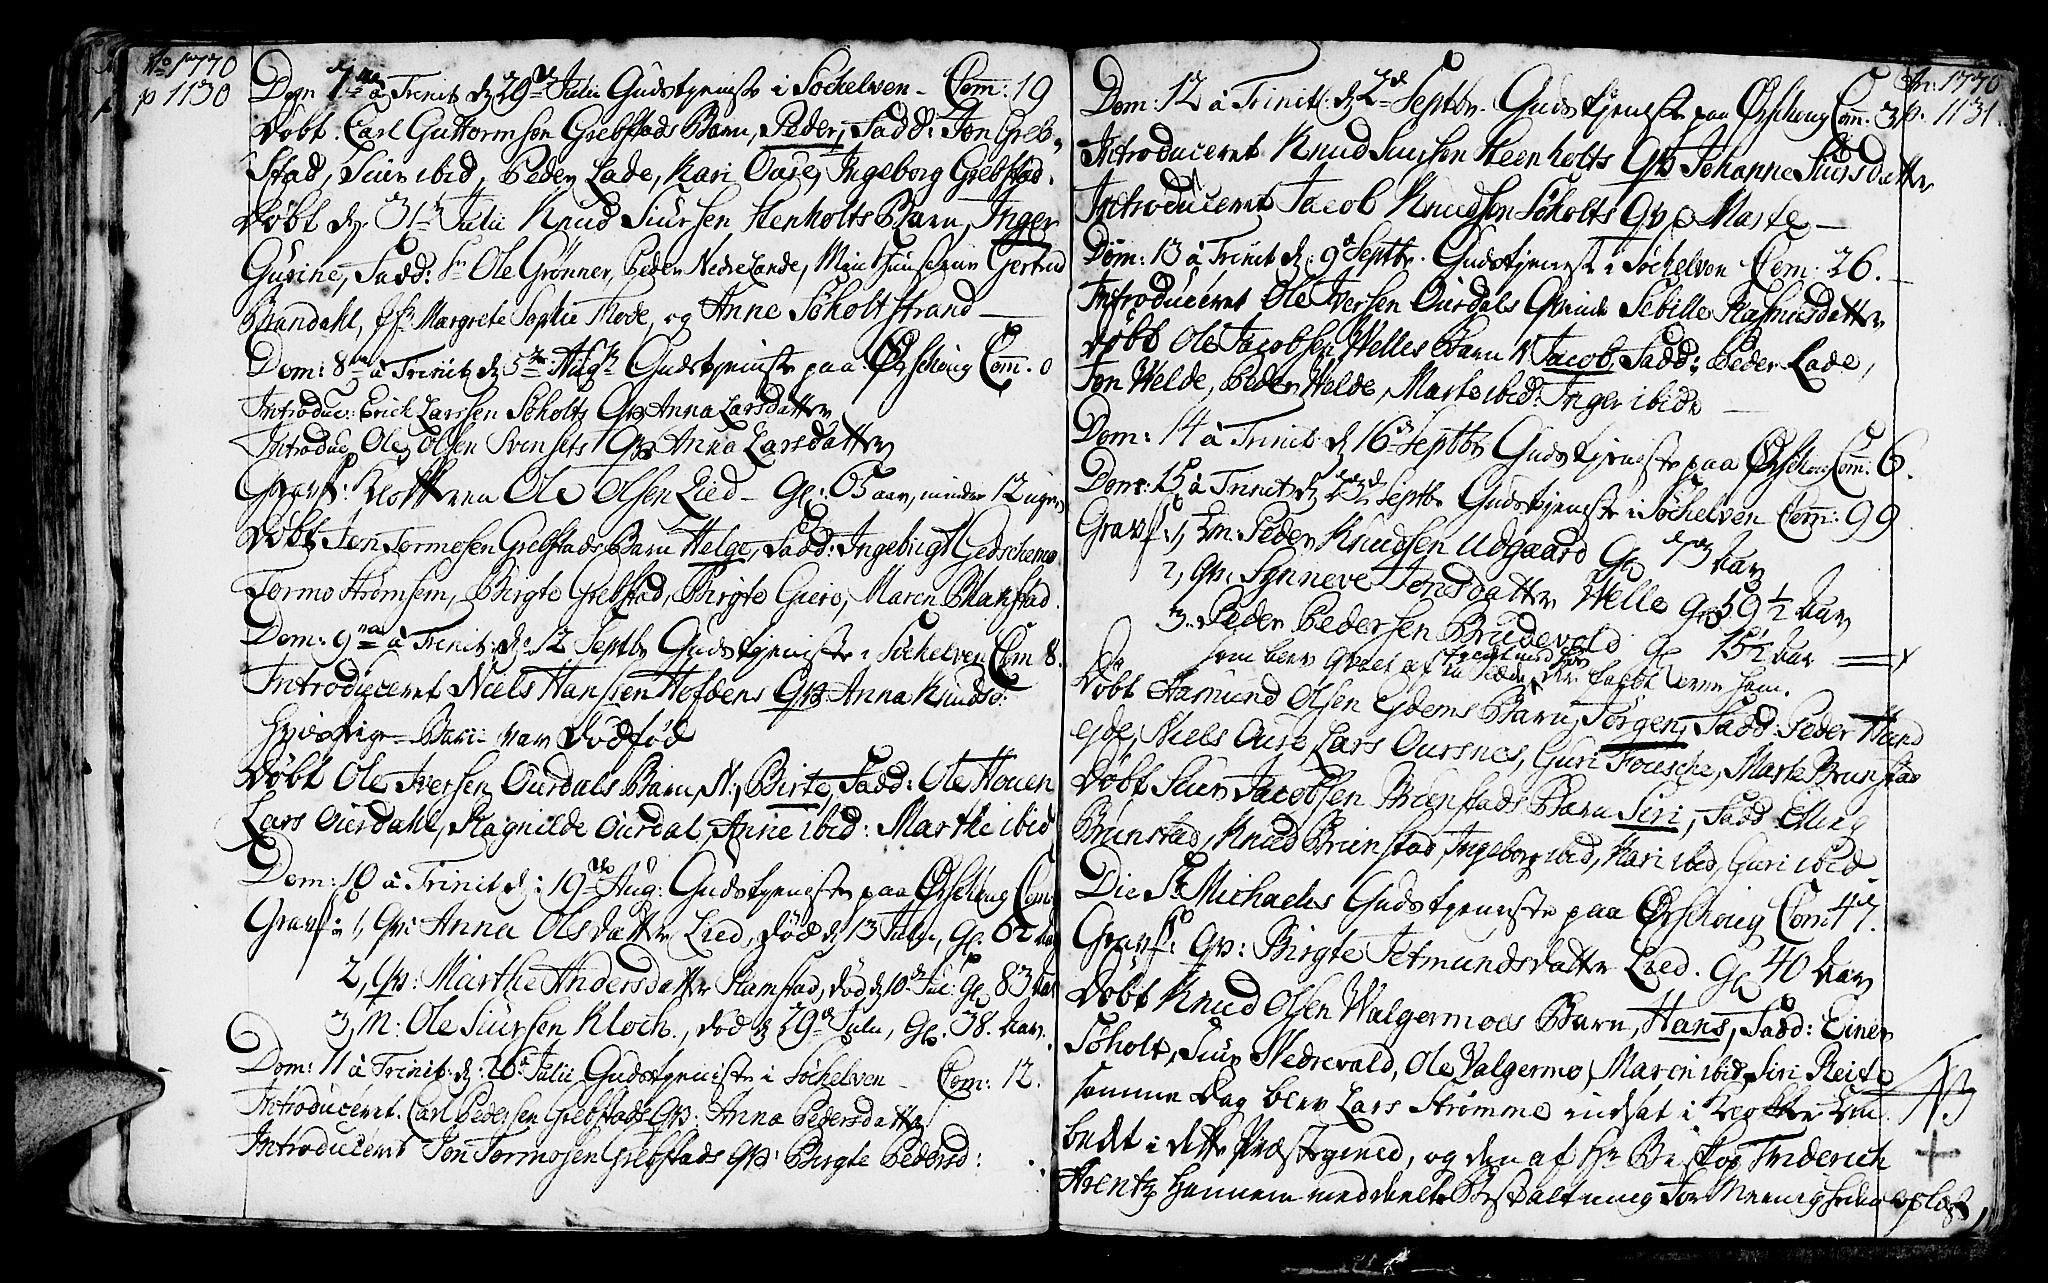 Ao 1770
p 1130
Dom 7ma à Trinit. d 29de Julii Gudstjeniste i Söchelven - Com: 19
Döbt. Carl Guttormsen Grebstads Barn, Peder, Fadd: Jon Greb-
stad, Siur ibid, Peder Lade, Kari Oure, Ingeborg Grebstad.
Döbt d 31te Julii Knud Siursen Stenholts Barn, Inger
Gurine, Fadd: Hr Ole Grönner, Peder Nedrelande, Gertrud
Brandahl, Margrete Sophie Thode, og Anne Söholtstrand
Dom: 8va à Trinit. d 5te Augti Gudstjeniste paa Ørschoug Com. 0
Introduc: Erich Larssen Söholts Qv Anna Larsdatter
Introduc Ole Olsen Svensets Qv Anna Larsdatter
Gravf: Klokkeren Ole Olsen Lied - Gl: 65 aar, mindre 12 uger
Döbt Jon Tormosen Grebstads Barn Helge, Fadd: Ingebrigt
Tormo Strömsem, Birgte Grebstad, Birgte Giere, Maren Ramstad.
Dom: 9na à Trinit: d. 12 Septbr Gudstjeniste i Söchelven Com 8.
Introduceret Niels Hanssen Hofdens Qv Anna Knudsd:
hvis Barn var dödfød
Döbt Ole Iversen Ourdals Barn, N: Birte, Fadd: Ole Houen
Lars Ouerdahl, Ragnilde Ourdal, Anne ibid: Marthe ibid
Dom: 10 à Trinit d: 19de Aug: Gudstjeniste paa Ørschoug Com
Gravf: 1, Qv: Anna Olsdatter Lied, död d 13 Julii, Gl. 62 aar
2, Qv: Marthe Andersdatter Ramstad, död d 10de Jul: Gl 83 aar
3, M: Ole Siursen Kloch, död d 29de Julii, Gl. 38. aar.
Dom: 11 à Trinit: d: 26de Julii Gudstjeniste i Söchelven - Com: 12.
Introduceret. Carl Pedersen Grebstads Qv: Anna Pedersdatter
Introduceret Jon Tormosen Grebstads Qv: Birgte Pedersd:
An: 1770
p. 1131
Dom: 12 à Trinit: d 2de Septbr. Gudstjeniste paa Ørschoug Com: 3
Introduceret Knud Siursen Steenholts Qv Johanne Siursdatter
Introduceret Jacob Knudsen Söholts Qv Marte -
Dom: 13 à Trinit d. 9de Septbr. Gudstjeniste i Söchelven Com: 26.
Introduceret Ole Iversen Ourdals Qvinde Sebille Rasmusdatter
Döbt Ole Jacobsen Welles Barn N Jacob, Fadd: Peder Lade,
Jon Welde, Peder Welde, Marte ibid: Inger ibid
Dom: 14 à Trinit: d 16de Septbr Gudstjeniste paa Ørschoug Com: 6.
Dom: 15 à Trinit d 23de Septbr Gudstjeniste i Söchelven Com: 99
Gravf: 1, Peder Knudsen Udgaard Gl 73 aar
2, Qv: Synneve Jonsdatter Welle Gl 59 1/2 aar
3. Peder Pedersen Brudevold. Gl 15 1/2 aar
som blev af
Döbt Aamund Olsen Ydems Barn, Jörgen, Fadd: Peder Hund
eyde, Niels Oure, Lars Oursnes, Guri Fousche, Marte Brunstad
Döbt Siur Jacobsen Brunstads Barn Siri, Fadd Elling
Brunstad, Knud Brunstad, Ingeborg ibid, Kari ibid, Guri ibid
Die St: Michaelis Gudstjeniste paa Ørschoug Com: 47.
Gravf: Qv: Birgte Jetmundsdatter Lied. Gl 40 aar
Döbt Knud Olsen Walgermoes Barn, Hans, Fadd: Einer
Söholt, Siur Nedrevald, Ole Valgermo, Maren ibid, Siri Reite
samme Dag blev Lars Strömme indsat i Klokker Em
bedt i dette Præstegield, og den af Hr Biskop Friderich
Arentz hannem meddeelte Bestaltning for Meenigheden oplæst